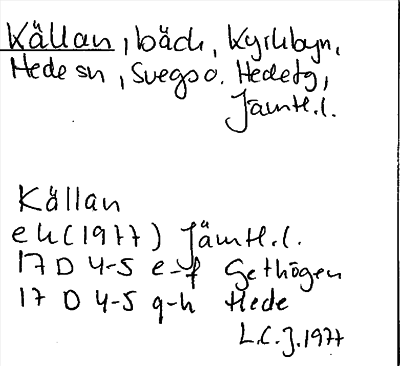 Källan, bäck, Kyrkbyn,
Hede sn, Svegs o. Hedetg,
Jämtl.l.
Källan
ek (1977) Jämtl.l.
17 D 4-5 e-f Gethögen
17 D 4-5 g-h Hede
L.C.J. 1977